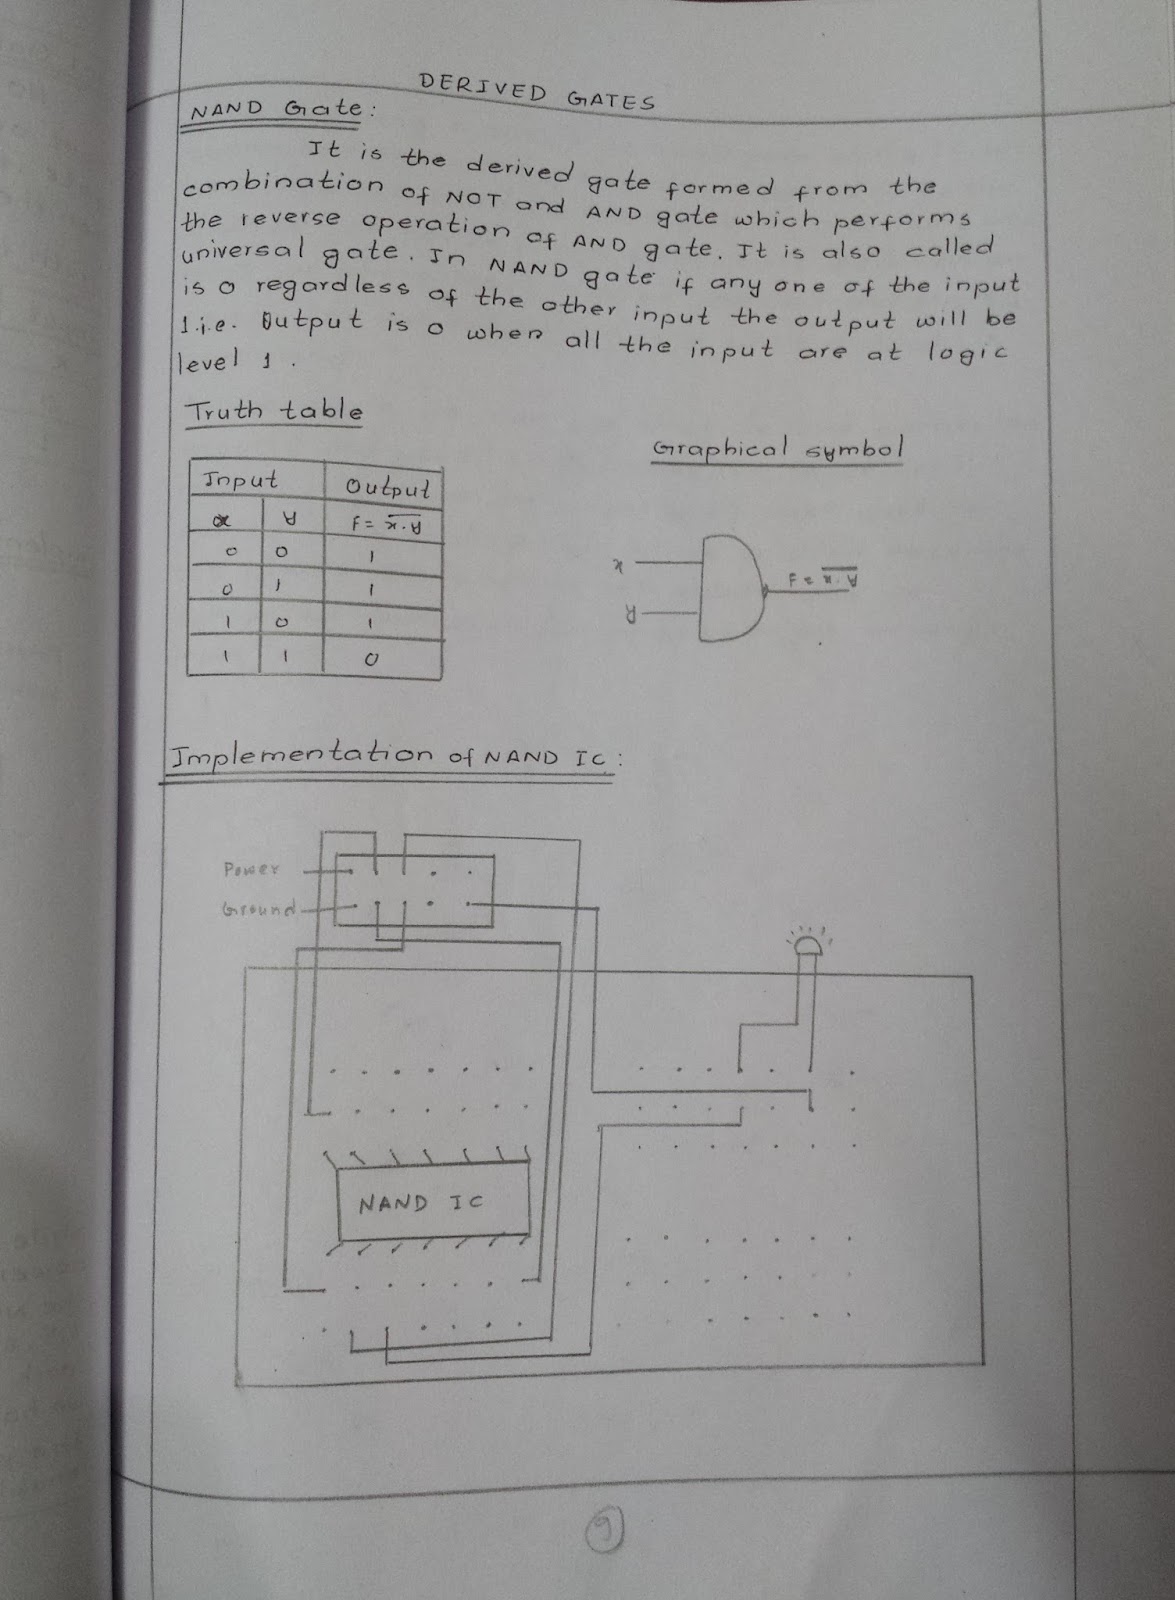 DERIVED GATES
NAND Gate:
It is the derived gate formed from the
combination of NOT and AND gate which performs
the reverse operation of AND gate. It is also called
universal gate. In NAND gate if any one of the input
is 0 regardless of the other input the output will be
1.i.e. Output is 0 when all the input are at logic
level 1.
Truth table
Graphical symbol
Input Output
x y F = \overline{x.y}
0 0 1
0 1 1
1 0 1
1 1 0
x
y
F = \overline{x.y}
Implementation of NAND IC:
Power
Ground
NAND IC
9